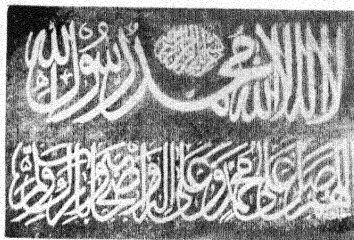 لا إله إلا الله محمد رسول الله
اللهم صل على محمد وعلى آله وأصحابه وبارك وسلم